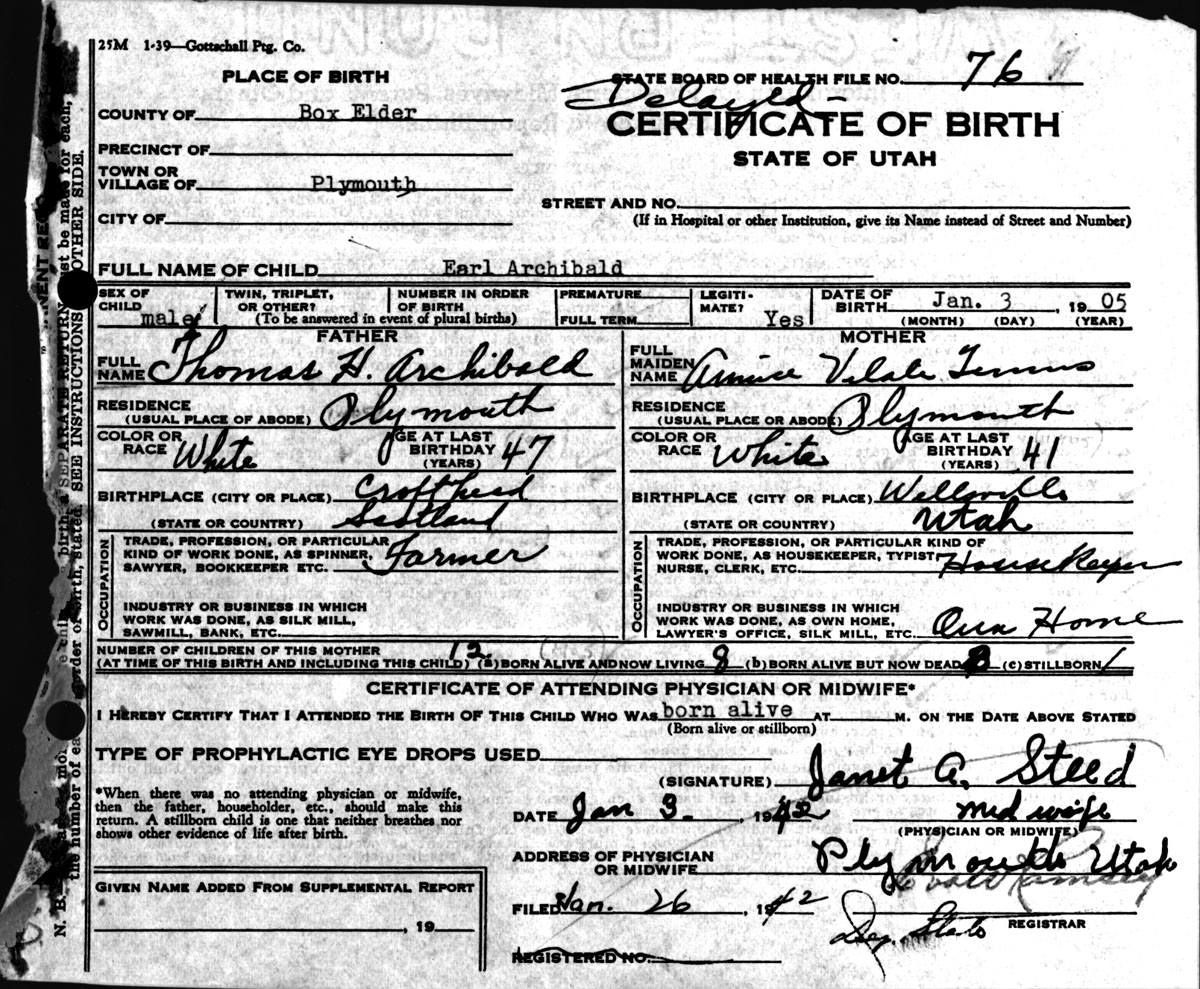 25M 1-39—Gottschall Ptg. Co.
PLACE OF BIRTH
STATE BOARD OF HEALTH FILE NO. 76
Delayed –
COUNTY OF Box Elder
CERTIFICATE OF BIRTH
PRECINCT OF
STATE OF UTAH
TOWN OR
VILLAGE OF Plymouth
STREET AND NO.
CITY OF
(If in Hospital or other Institution, give its Name instead of Street and Number)
FULL NAME OF CHILD Earl Archibald
SEX OF CHILD male
TWIN, TRIPLET, OR OTHER?
NUMBER IN ORDER OF BIRTH
(To be answered in event of plural births)
PREMATURE
FULL TERM
LEGITI-MATE? Yes
DATE OF BIRTH Jan. 3, 1905
(MONTH) (DAY) (YEAR)
FATHER
FULL NAME Thomas H. Archibald
RESIDENCE
(USUAL PLACE OF ABODE) Plymouth
COLOR OR RACE White
AGE AT LAST BIRTHDAY (YEARS) 47
BIRTHPLACE (CITY OR PLACE) Crofthead
(STATE OR COUNTRY) Scotland
OCCUPATION
TRADE, PROFESSION, OR PARTICULAR
KIND OF WORK DONE, AS SPINNER,
SAWYER, BOOKKEEPER ETC. Farmer
INDUSTRY OR BUSINESS IN WHICH
WORK WAS DONE, AS SILK MILL,
SAWMILL, BANK, ETC.
MOTHER
FULL MAIDEN NAME
RESIDENCE
(USUAL PLACE OR ABODE) Plymouth
COLOR OR RACE White
AGE AT LAST BIRTHDAY (YEARS) 41
BIRTHPLACE (CITY OR PLACE) Wellsville
(STATE OR COUNTRY) Utah
OCCUPATION
TRADE, PROFESSION, OR PARTICULAR KIND OF
WORK DONE, AS HOUSEKEEPER, TYPIST
NURSE, CLERK, ETC. HouseKeeper
INDUSTRY OR BUSINESS IN WHICH
WORK WAS DONE, AS OWN HOME,
LAWYER'S OFFICE, SILK MILL, ETC. Own Home
NUMBER OF CHILDREN OF THIS MOTHER 12
(AT TIME OF THIS BIRTH AND INCLUDING THIS CHILD) (a) BORN ALIVE AND NOW LIVING 8 (b) BORN ALIVE BUT NOW DEAD 3 (c) STILLBORN 1
CERTIFICATE OF ATTENDING PHYSICIAN OR MIDWIFE*
I HEREBY CERTIFY THAT I ATTENDED THE BIRTH OF THIS CHILD WHO WAS born alive AT M. ON THE DATE ABOVE STATED
(Born alive or stillborn)
TYPE OF PROPHYLACTIC EYE DROPS USED
(SIGNATURE) Janet A. Steed
*When there was no attending physician or midwife,
then the father, householder, etc., should make this
return. A stillborn child is one that neither breathes nor
shows other evidence of life after birth.
DATE Jan 3. , 1942 Midwife
(PHYSICIAN OR MIDWIFE)
ADDRESS OF PHYSICIAN
OR MIDWIFE Plymouth Utah
GIVEN NAME ADDED FROM SUPPLEMENTAL REPORT
, 19
FILED Jan. 26 , 1942
REGISTRAR
REGISTERED NO.
SEE INSTRUCTIONS OTHER SIDE.